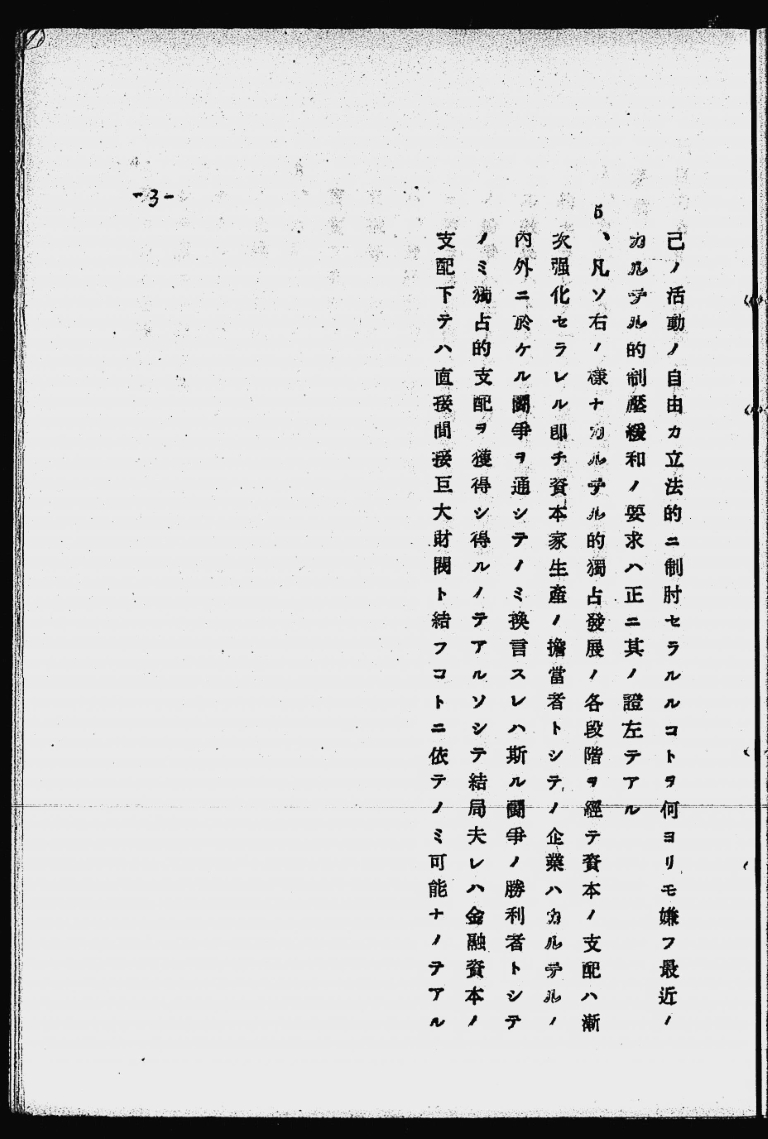 己ノ活動ノ自由カ立法的ニ制肘セラルルコトヲ何ヨリモ嫌フ最近ノ
カルテル的制壓緩和ノ要求ハ正ニ其ノ證左テアル
5、凡ソ右ノ樣ナカルテル的獨占發展ノ各段階ヲ經テ資本ノ支配ハ漸
次强化セラレル卽チ資本家生產ノ擔當者トシテノ企業ハカルテルノ
內外ニ於ケル鬪爭ヲ通シテノミ換言スレハ斯ル鬪爭ノ勝利者トシテ
ノミ獨占的支配ヲ獲得シ得ルノテアルソシテ結局夫レハ金融資本ノ
支配下テハ直接間接巨大財閥ト結フコトニ依テノミ可能ナノテアル
-3-